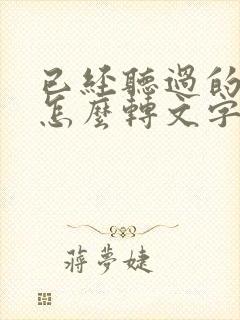 已經聽過的
怎麼轉文字
蔣夢婕